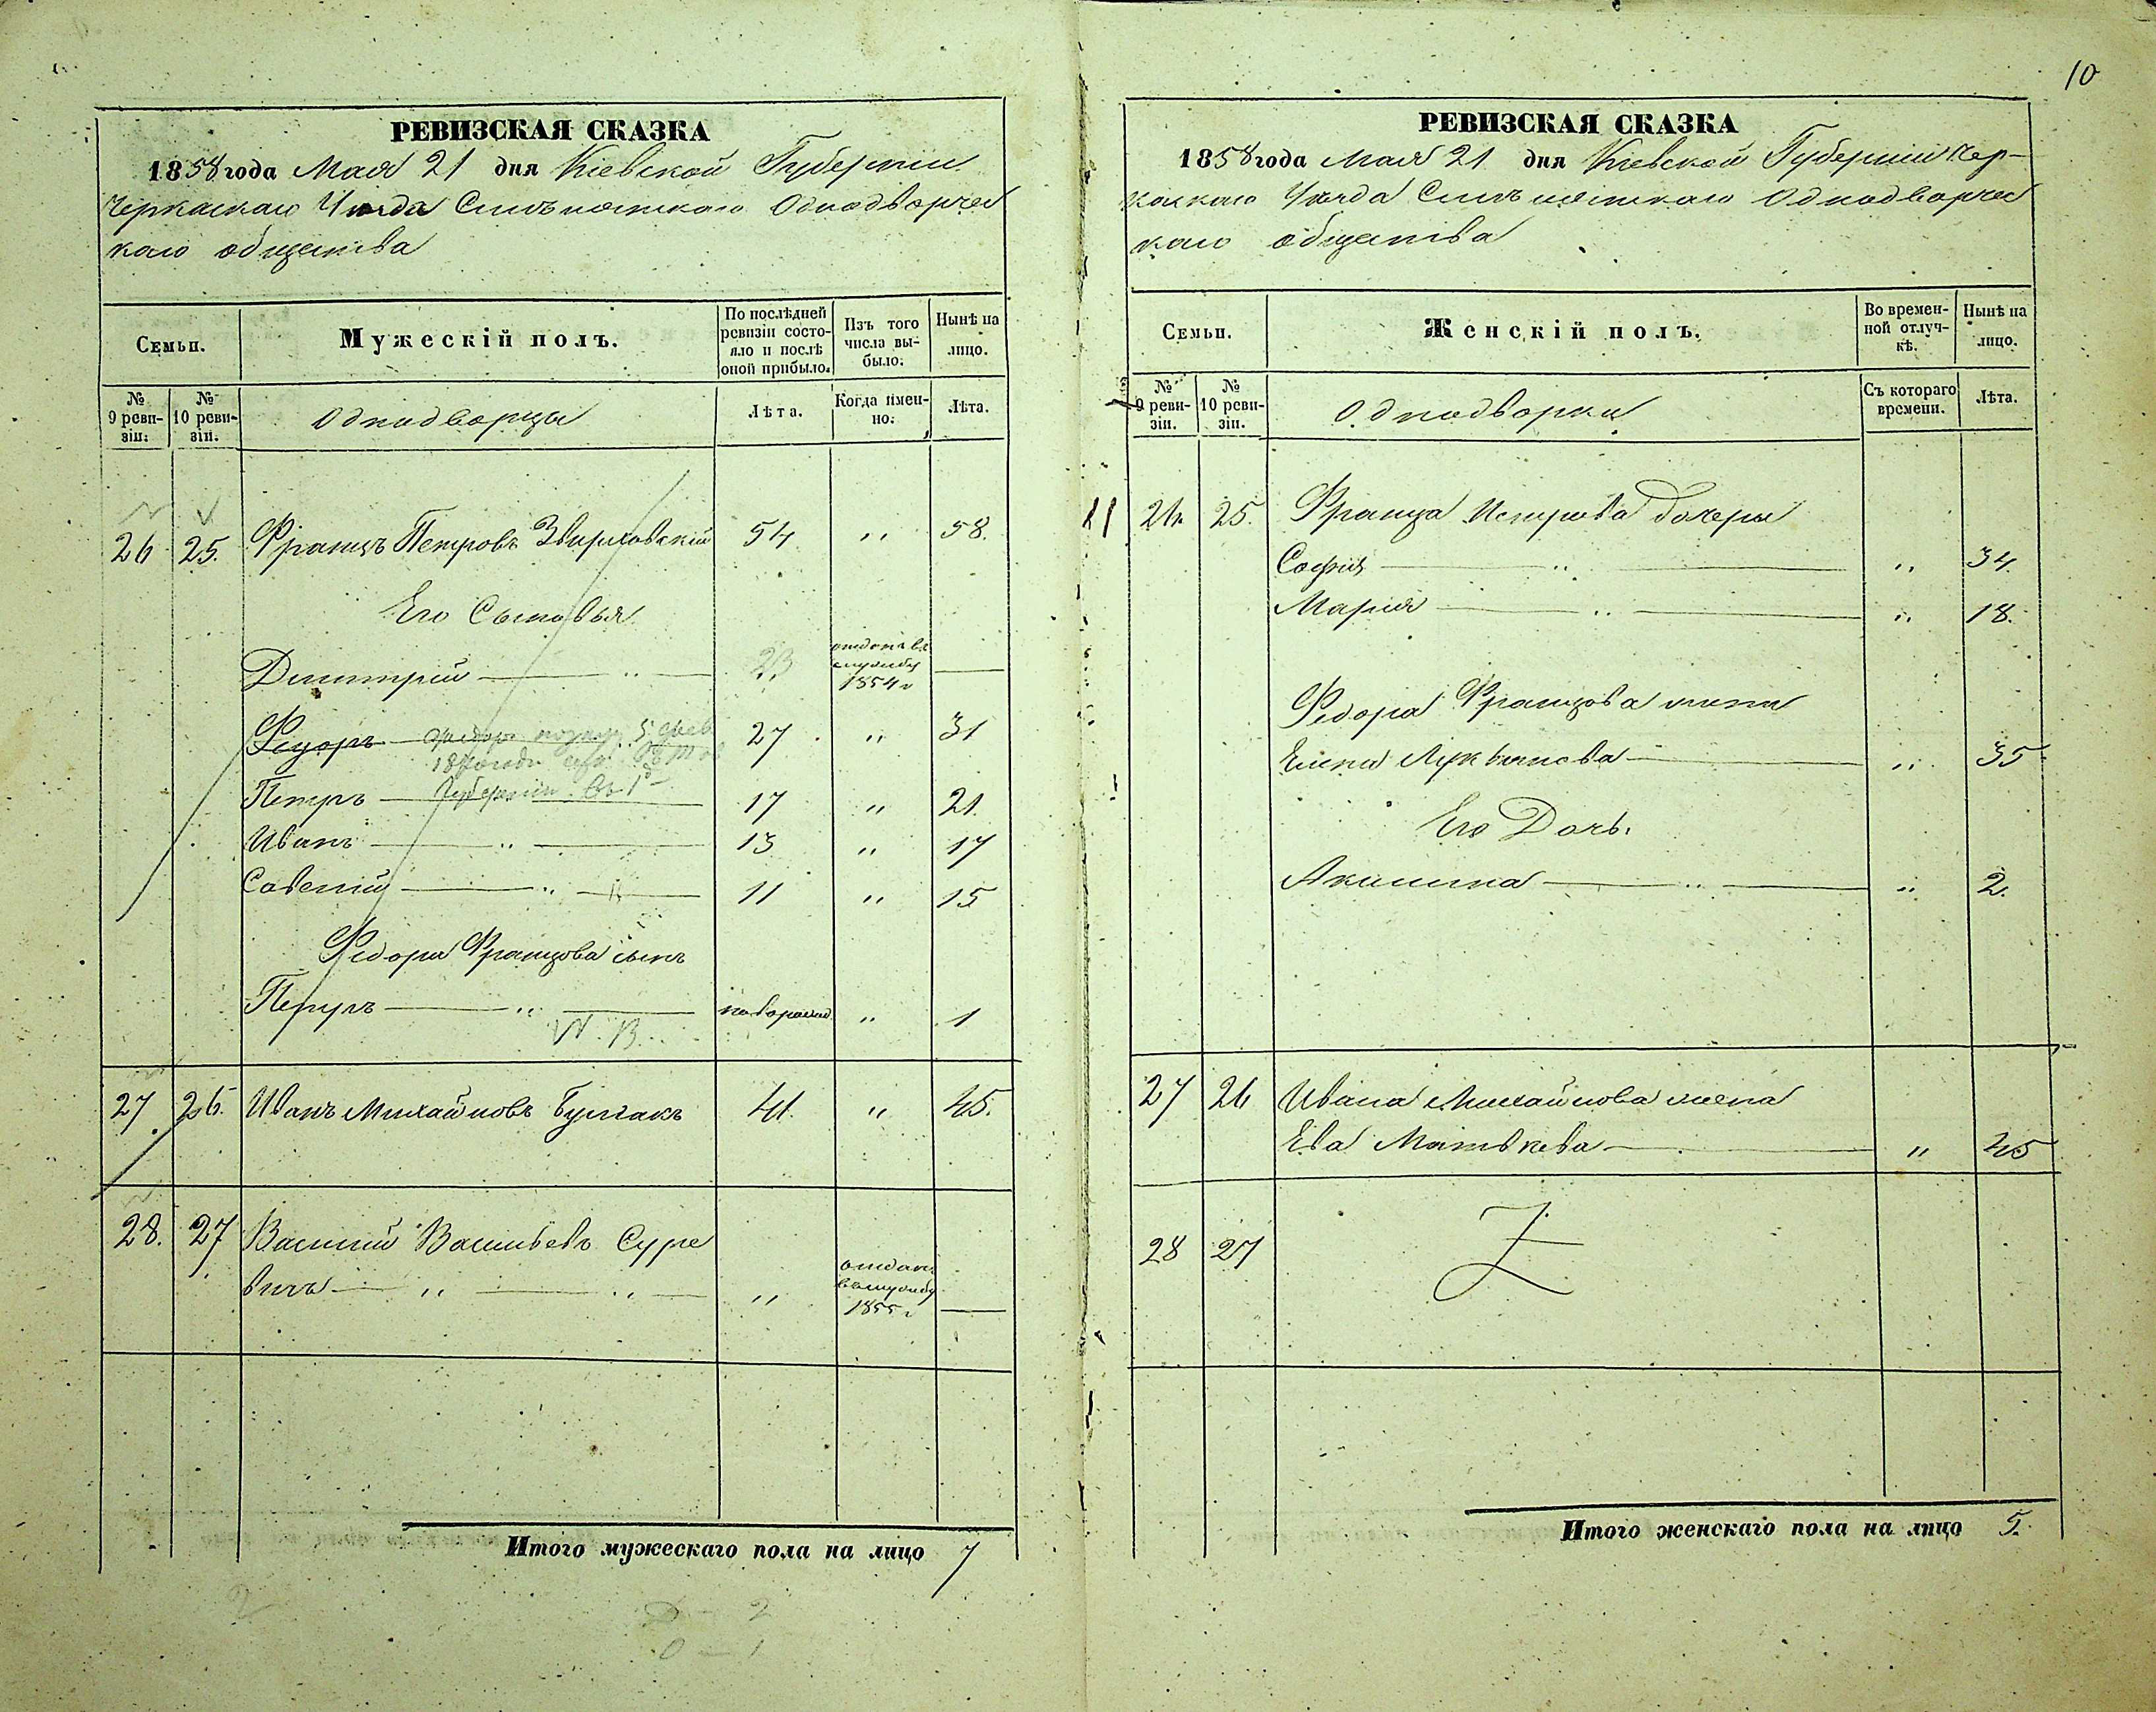 10
РЕВИЗСКАЯ СКАЗКА
1858 года Мая 21 дня Кіевской Губерніи
Черкаскаго Уезда Однодворчес
каго общества
Семьи.
Мужескій полъ.
По послѣдней ревизіи состояло и послѣ оной прибыло.
Изъ того числа выбыло.
Нынѣ на лицо.
№ 9 ревизіи.
№ 10 ревизіи.
Однодворцы
Лѣта.
Когда именно.
Лѣта.
26 25. Францъ Петровъ 54 " 58.
Его Сыновья
Дмитрій — " — 23 отданъ въ службу 1854 г —
Федоръ 27 " 31
Губерніи
Петръ — 17 " 21.
Иванъ — " — 13 " 17
Савелій — " — 11 " 15
Федора Францова сынъ
Петръ — " — новорожд. " 1
27 26. Иванъ Михайловъ Булгакъ 41. " 45.
28. 27 Василій Васильевъ Суре
вичъ — " — " — " отдан. въ службу 1855 г —
Итого мужескаго пола на лицо 7
2
2
0 — 1
РЕВИЗСКАЯ СКАЗКА
1858 года Мая 21 дня Кіевской Губерніи Чер-
каскаго Уезда Однодворчес
каго общества
Семьи.
Женскій полъ.
Во временной отлучкѣ.
Нынѣ на лицо.
№ 9 ревизіи.
№ 10 ревизіи.
Однодворки
Съ котораго времени.
Лѣта.
11 26. 25. Франца Петрова дочери
Софія — " — " 34.
Марія — " — " 18.
Федора Францова жена
Елена Лукьянова — " 35
Его Дочь.
Акилина — " — " 2.
27 26 Ивана Михайлова жена
Ева Матвѣева — " 45
28 27
Итого женскаго пола на лицо 5.